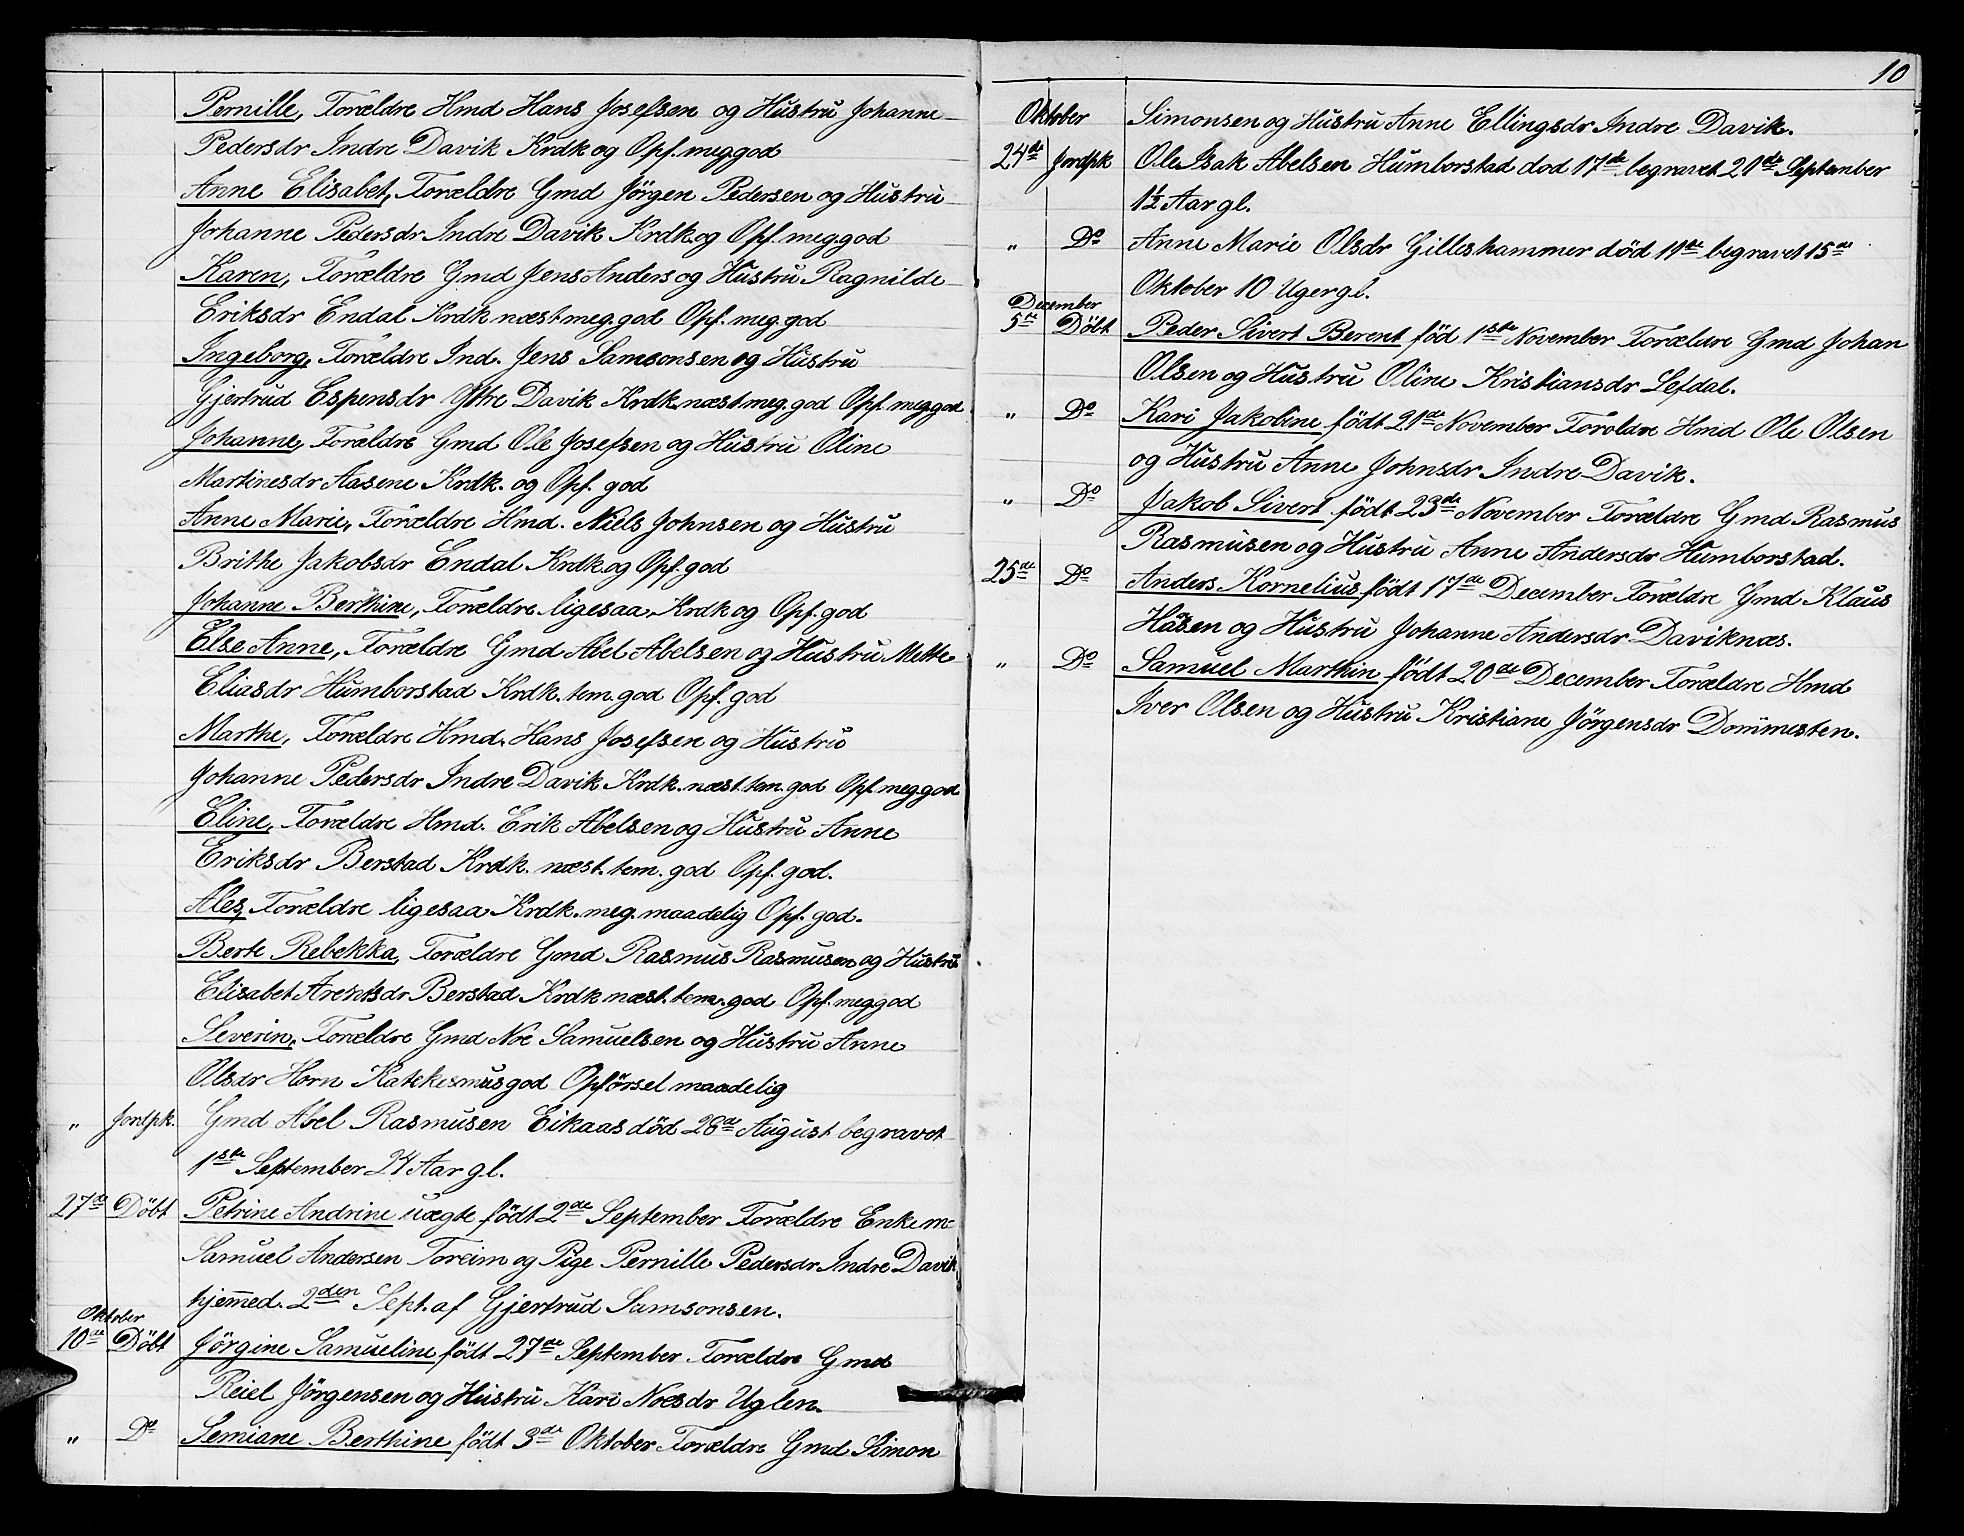 Pernille, Forældre Hmd Hans Josefsen og Hustru Johanne
Pedersdr Indre Davik Krdk og Opf. meg god
Anne Elisabet, Forældre Gmd Jörgen Pedersen og Hustru
Johanne Pedersdr Indre Davik Krdk. og Opf. meg. god
Karen, Forældre Gmd Jens Anders og Hustru Ragnilde
Eriksdr Endal Krdk næst meg. god Opf. meg. god
Ingeborg, Forældre Ind. Jens Samsonsen og Hustru
Gjertrud Espensdr Ytre Davik Krdk. næst meg. god Opf. meg. god
Johanne, Forældre Gmd Ole Josefsen og Hustru Oline
Martinesdr Aasene Krdk. og Opf. god
Anne Marie, Forældre Hmd. Niels Johnsen og Hustru
Brithe Jakobsdr Endal Krdk og Opf. god
Johanne Berthine, Forældre ligesaa, Krdk og Opf. god
Else Anne, Forældre Gmd Abel Abelsen og Hustru Mette
Eliasdr Humborstad Krdk. tem. god Opf. god
Marthe, Forældre Hmd. Hans Josefsen og Hustru
Johanne Pedersdr Indre Davik Krdk. næst. tem. god Opf. meg. god
Eline, Forældre Hmd. Erik Abelsen og Hustru Anne
Eriksdr Berstad Krdk. næst. tem. god Opf. god.
Ales, Forældre ligesaa Krdk. meg. maadelig Opf. god.
Berte Rebekka, Forældre Gmd Rasmus Rasmusen og Hustru
Elisabet Arentsdr Berstad Krdk næst. tem. god Opf. meg. god
Severin, Forældre Gmd Noe Samuelsen og Hustru Anne
Olsdr Horn Katekesmus god Opförsel maadelig
" Jordpk. Gmd Abel Rasmusen Eikaas död 26de August begravet
1ste September 24 Aar gl.
27de Döbt Petrine Andrine uægte födt 2de September Forældre Enkem-
Samuel Andersen Toreim og Pige Pernille Pedersdr Indre Davik
hjemmed. 2den Sept. af Gjertrud Samsonsen.
Oktober
10de Döbt Jörgine Samueline födt 27de September Forældre Gmd
Reiel Jörgensen og Hustru Kari Noesdr Uglen.
" Do Semiane Berthine födt 3de Oktober Forældre Gmd Simon
10
Oktober Simonsen og Hustru Anne Ellingsdr Indre Davik.
24de Jordpk Ole Isak Abelsen Humborstad dod 17de begravet 21de September
1½ Aar gl.
" Do Anne Marie Olsdr Gilleshammer död 11te begravet 15de
Oktober 10 Uger gl.
December
5te Döbt Peder Sivert Berent föd 1ste November Forældre Gmd Johan
Olsen og Hustru Oline Kristiansdr Lefdal.
" Do Kari Jakobine födt 21de November Foroldre Hmd Ole Olsen
og Hustru Anne Johnsdr Indre Davik.
" Do Jakob Sivert födt 23de November Forældre Gmd Rasmus
Rasmusen og Hustru Anne Andersdr Humborstad.
25de Do Anders Kornelius födt 17de December Forældre Gmd Klaus
Hansen og Hustru Johanne Andersdr Daviknæs.
" Do Samuel Marthin födt 20de December Forældre Hmd
Iver Olsen og Hustru Kristiane Jörgensdr Dommesten.